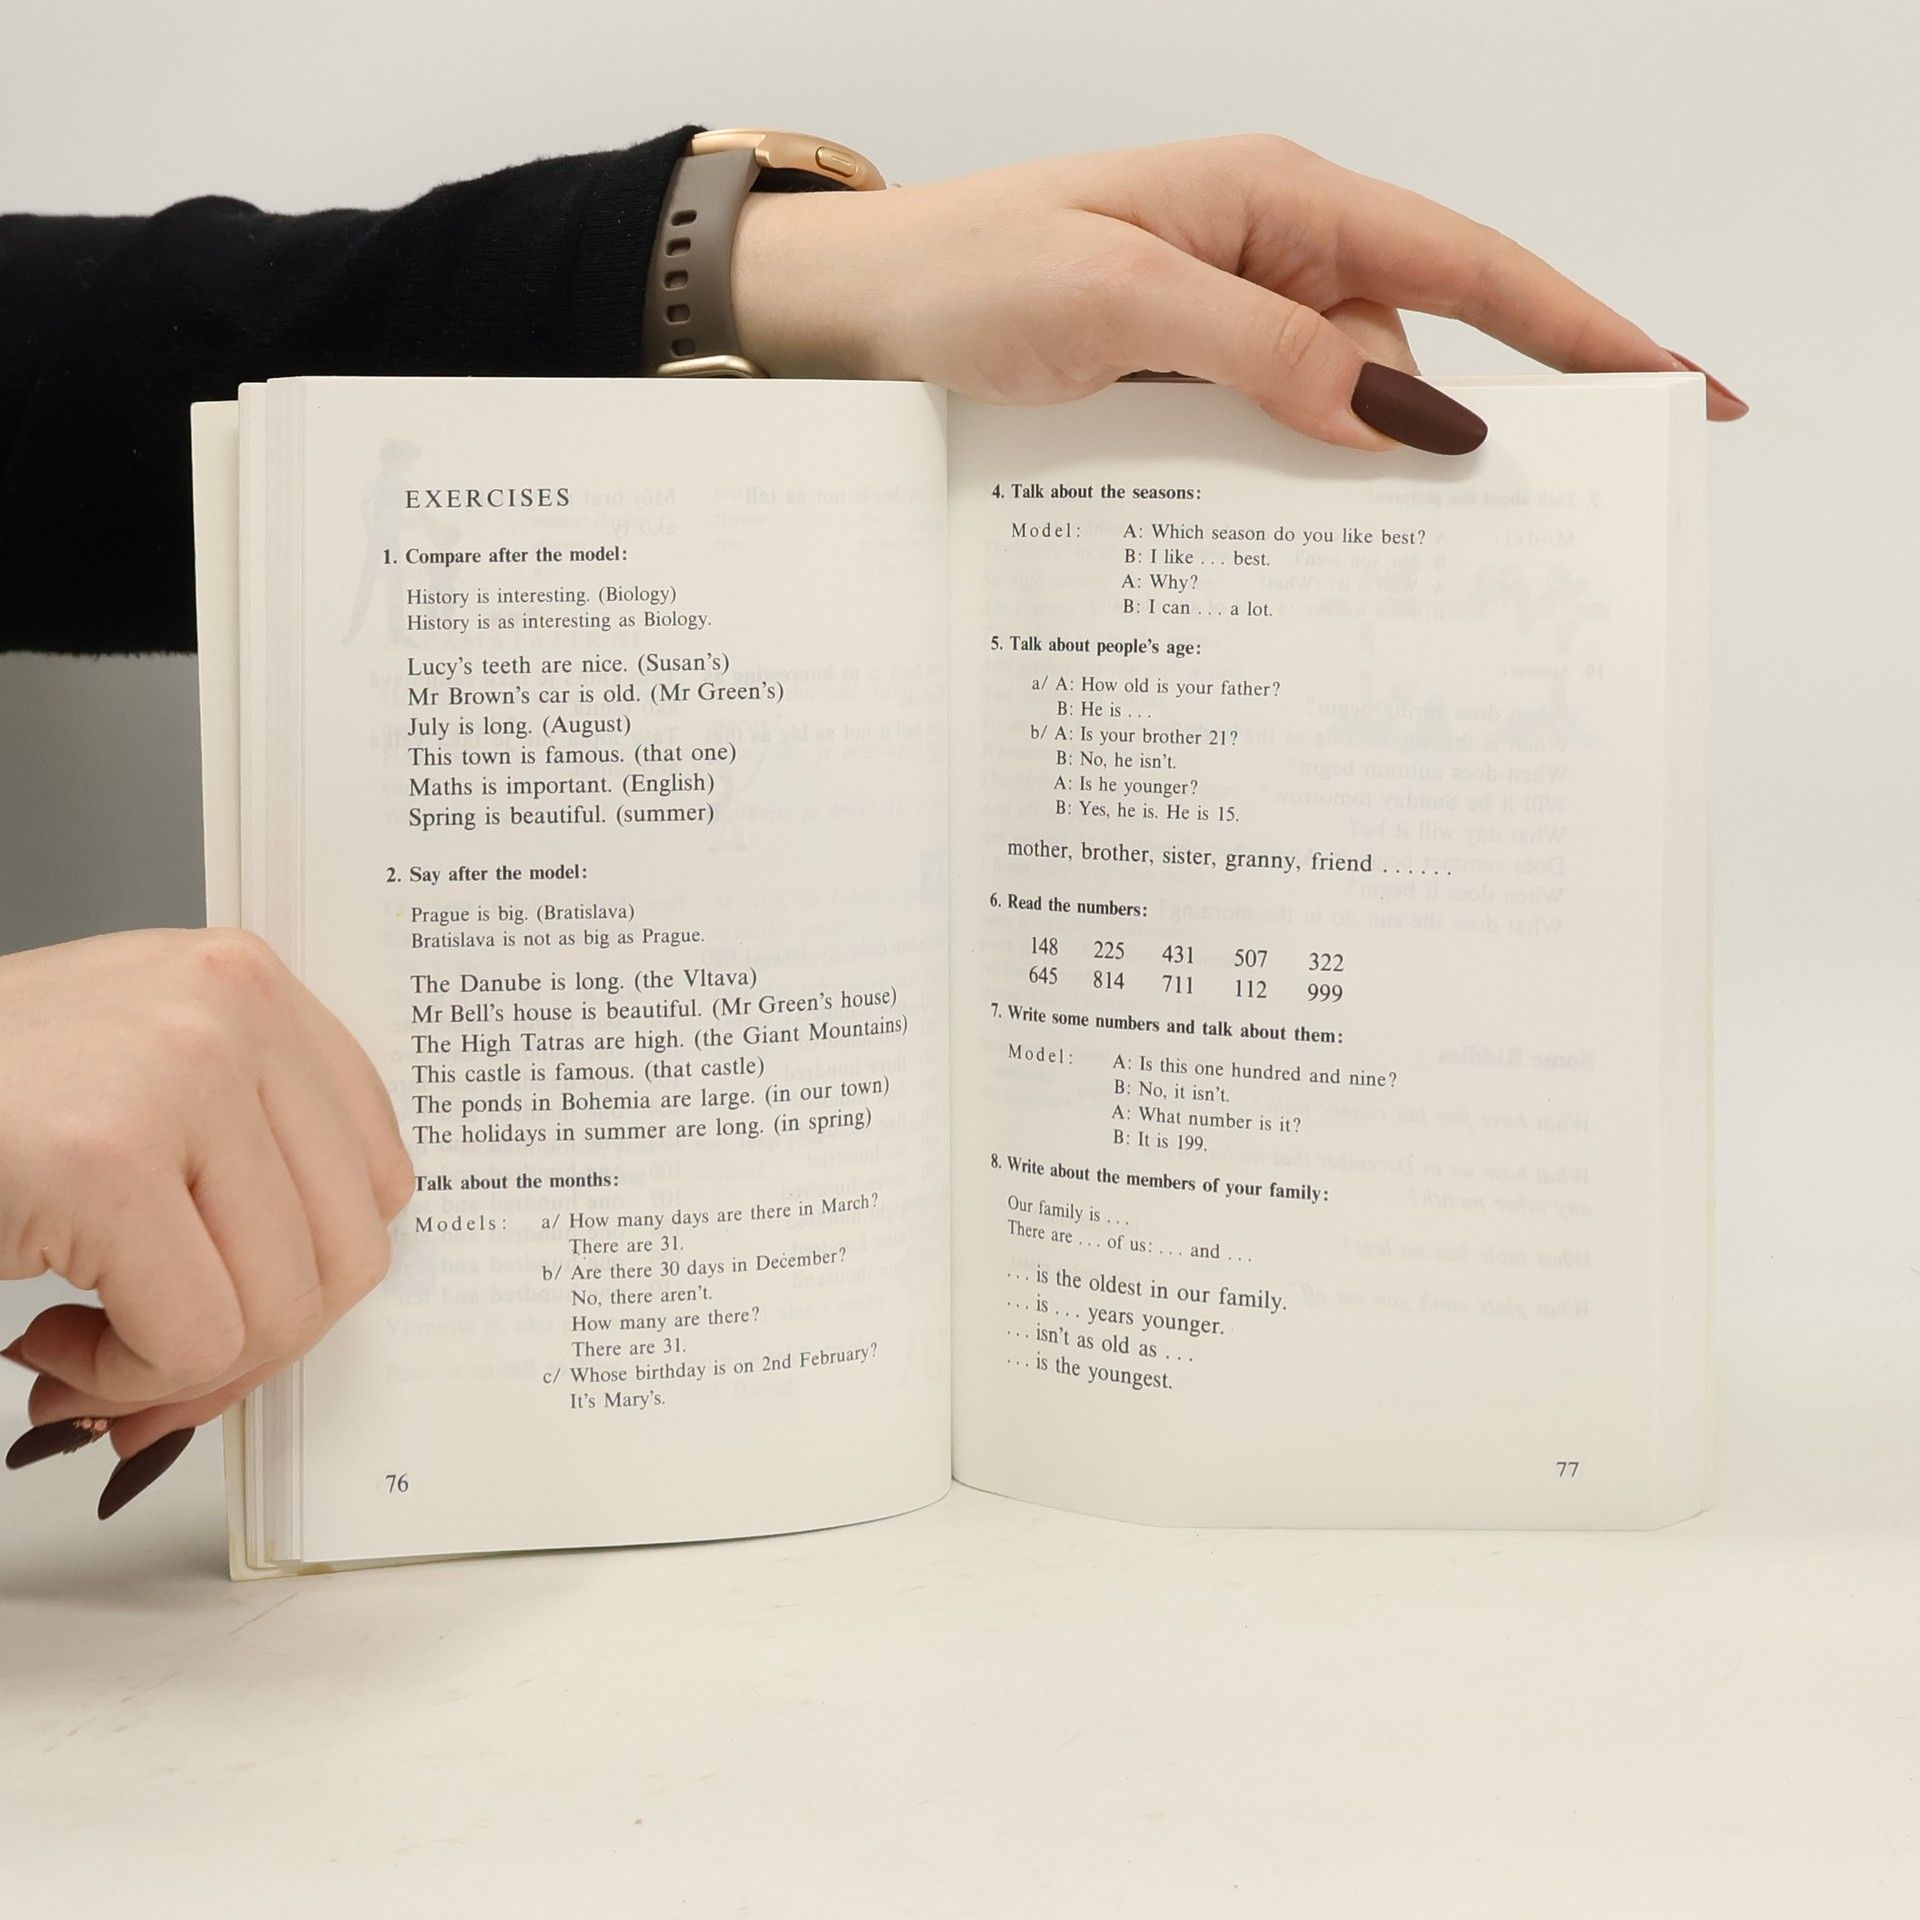 EXERCISES
1. Compare after the model:
History is interesting. (Biology)
History is as interesting as Biology.
Lucy's teeth are nice. (Susan's)
Mr Brown's car is old. (Mr Green's)
July is long. (August)
This town is famous. (that one)
Maths is important. (English)
Spring is beautiful. (summer)
2. Say after the model:
Prague is big. (Bratislava)
Bratislava is not as big as Prague.
The Danube is long. (the Vltava)
Mr Bell's house is beautiful. (Mr Green's house)
The High Tatras are high. (the Giant Mountains)
This castle is famous. (that castle)
The ponds in Bohemia are large. (in our town)
The holidays in summer are long. (in spring)
Talk about the months:
Models: a/ How many days are there in March?
There are 31.
b/ Are there 30 days in December?
No, there aren't.
How many are there?
There are 31.
c/ Whose birthday is on 2nd February?
It's Mary's.
76
4. Talk about the seasons:
Model: A: Which season do you like best?
B: I like ... best.
A: Why?
B: I can ... a lot.
5. Talk about people's age:
a/ A: How old is your father?
B: He is ...
b/ A: Is your brother 21?
B: No, he isn't.
A: Is he younger?
B: Yes, he is. He is 15.
mother, brother, sister, granny, friend ......
6. Read the numbers:
148 225 431 507 322
645 814 711 112 999
7. Write some numbers and talk about them:
Model: A: Is this one hundred and nine?
B: No, it isn't.
A: What number is it?
B: It is 199.
8. Write about the members of your family:
Our family is ...
There are ... of us: ... and ...
... is the oldest in our family.
... is ... years younger.
... isn't as old as ...
... is the youngest.
77